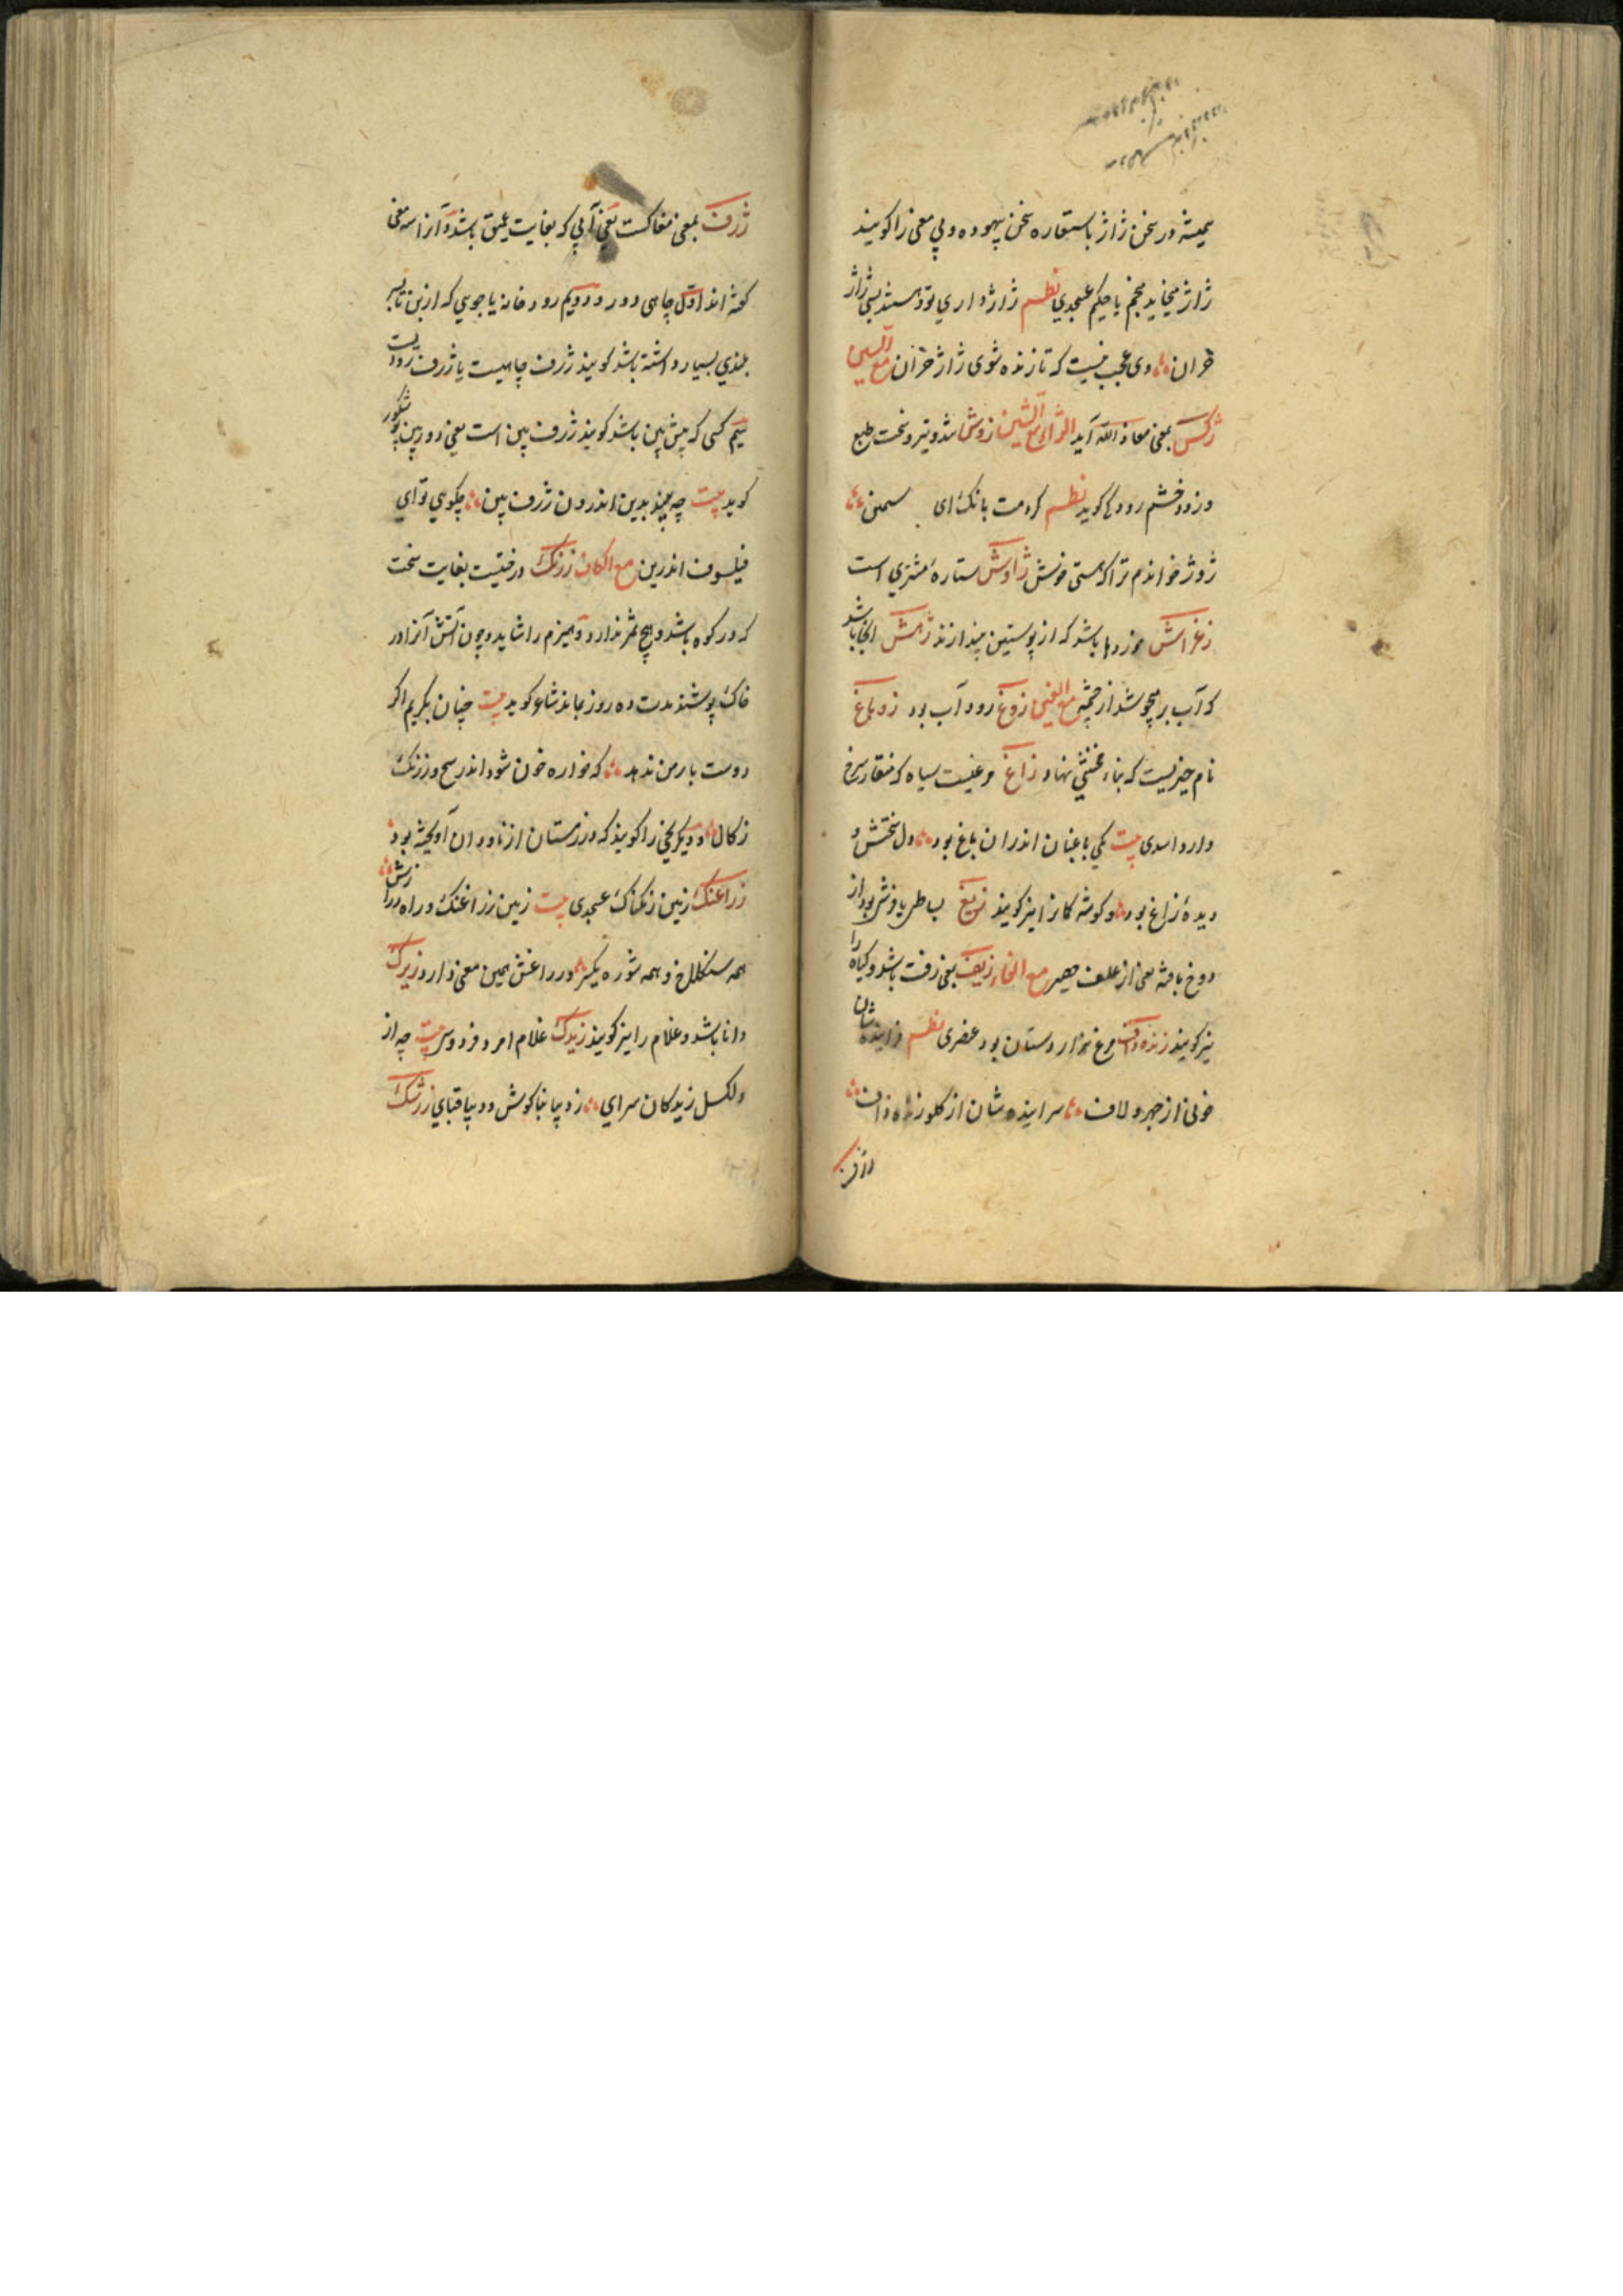 همیشه در سخن ژاژ باستعاره سخن بیهوده و بی معنی را کویند
ژاژ میخاید مجنم یا حکیم عسجدي نظم ژاژ داري تو و هستند بسی ژاژ
خران وی عجب نیست که تازنده شوی ژاژ خران مع السین
ژکس بمعنی معاذ الله آید الزاء مع الشین زوش تند و تیز و سخت طبع
و زود خشم رودکی کوید نظم کردمت بانک ای سمن
ژوژ خواندم ترا که هستی خوش ژاوش ستاره مشتري است
زغراش خردها باشد که از پوستین بیندازند زهش انجا باشد
که آب بر میجوشد از چشمه مع الغین زوغ رود آب بود زوباغ
نام چیزیست که بناء نهاد زاغ مرغیست سیاه که منقار سرخ
دارد اسدی بیت یکی باغبان اندران باغ بود دل سختش و
دیده زاغ بود و کوشه کمان را نیز کویند زیغ بساطی یا فرشی بود از
دوخ بافته یعنی از علف حصیر مع الفاء زیف یعنی زفت باشد و کیاه را
نیز کویند زنده واف مرغ هزاردستان بود عنصری نظم فزاینده شان
خوبی از چهر و لاف سراینده شان از کلو زنده واف
ژرف
ژرف بمعنی مغاکست یعنی آبی که بغایت عمیق باشد و آنرا سه معنی
کفته اند اول چاهی دور دوویم رودخانه یا جویي که از بن تا بسر
بلندي بسیار داشته باشد کویند ژرف چاهیست یا ژرف رودیست
سیم کسی که پیش بین باشد کویند ژرف بین است یعنی دوربین بو شکور
کوید بیت چه بیند بدین اندرون ژرف بین چکویي تو اي
فیلسوف اندرین مع الکاف زرنک درختیست بغایت سخت
که در کوه باشد و هیچ ثمر ندارد و هیزم را شاید و چون آتش آنرا در
خاک پوشند مدت ده روز بماند شاعر کوید بیت چنان بکریم اکر
دوست بار من ندهد که خواره خون شود اندر سح و زرنک
زکال و دیکر یخی را کویند که در زمستان از ناودان آویخته بود
زراغنک زمین ریکناک عسجدی بیت زمین زراغنک و راه درازش
همه سنکلاخ و همه شوره یکسر و زراغنش همین معنی دارد زیرک
دانا باشد و غلام را نیز کویند زیدک غلام امرد فردوسی بیت چه از
دلکسل زیدکان سراي ز دیبا بناکوش و دیبا قباي زرشک